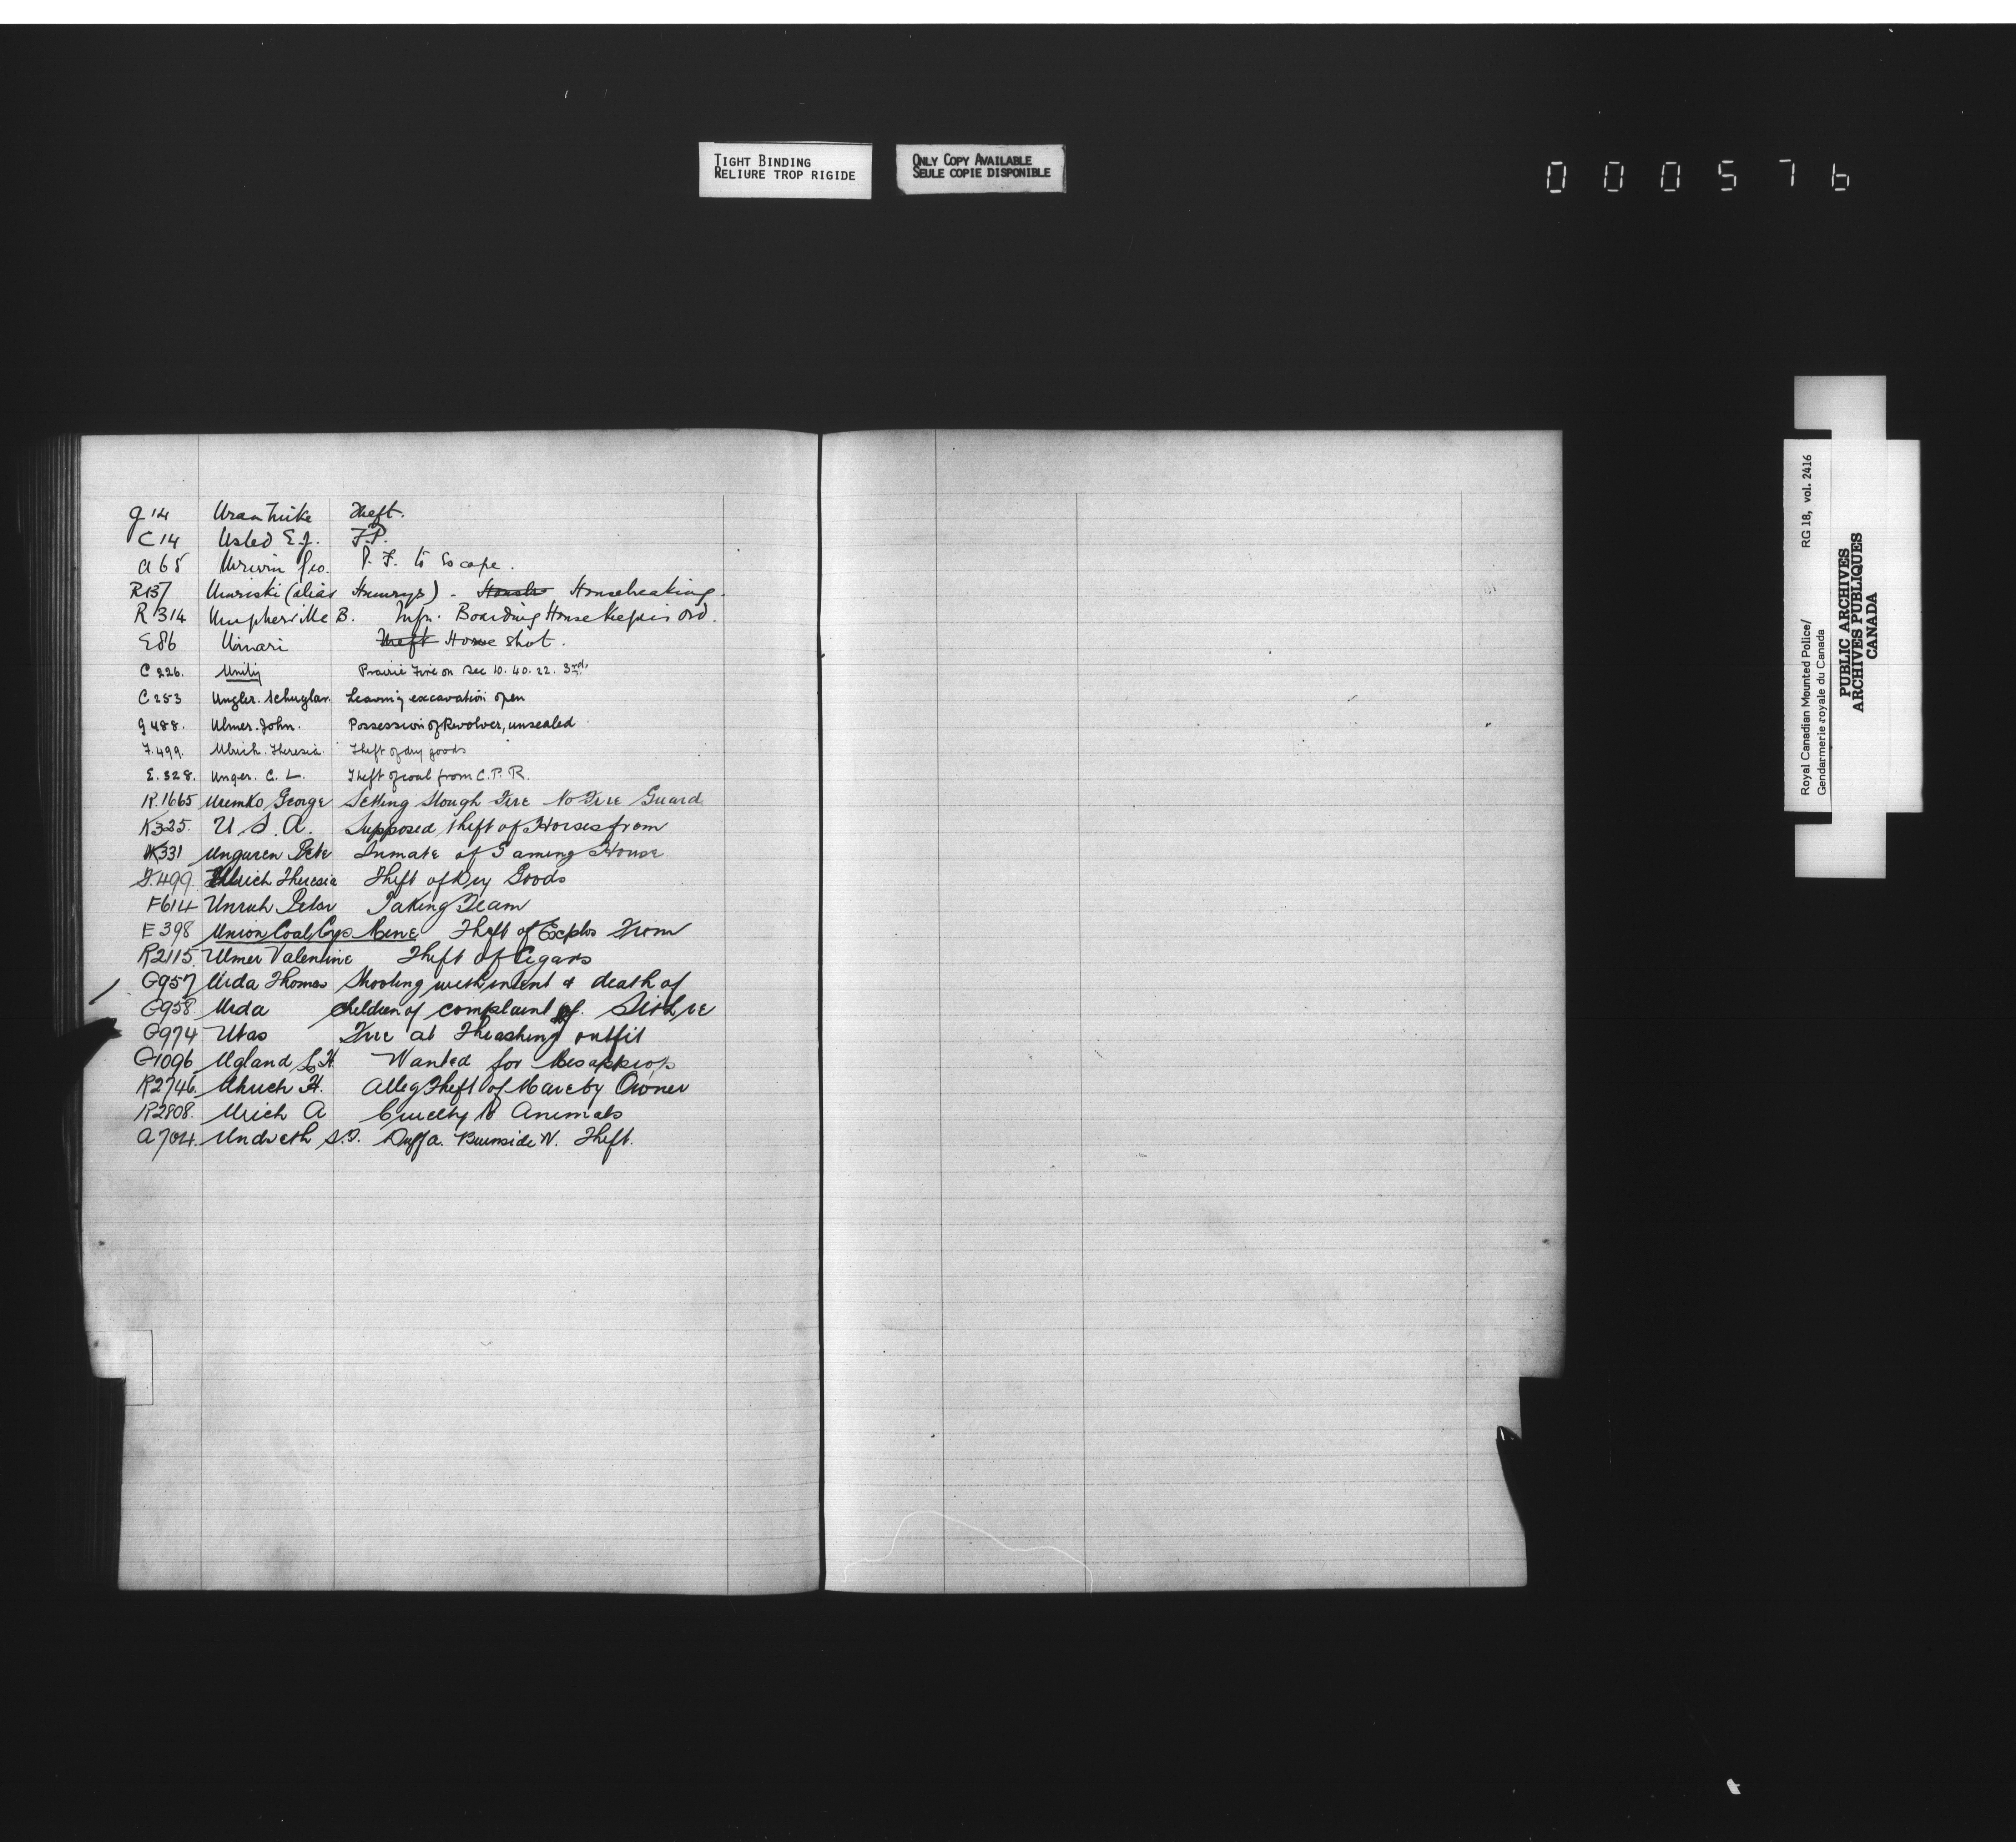 TIGHT BINDING
RELIURE TROP RIGIDE
ONLY COPY AVAILABLE
SEULE COPIE DISPONIBLE
000576
G 14 Uran Mike Theft.
C 14 Usted E.J. F.P.
A 65 Urwin Geo. P. F. to Escape.
R137 Umriski (alias Humrys) - Housebreaking.
R 314 Umpherville B. Infn. Boarding House Keepers Ord.
E86 Uinari Theft Horse shot.
C 226. Unity Prairie Fire on Sec 10. 40. 22. 3rd.
C 253 Ungler. Schuylar. Leaving excavation open
G 488. Ulmer. John. Possession of Revolver, unsealed
F. 499. Ulrich. Theresia. Theft of dry goods
E. 328. Unger. C. L. Theft of coal from C.P.R.
R. 1665 Uremko George Setting Slough Fire No Fire Guard
K325. U.S.A. Supposed theft of Horses from
K331 Unguren Pete Inmate of Gaming House
F.499. Ulrich Theresia Theft of Dry Goods
F614 Unruh Peter Taking Team
E 398 Union Coal Cys Mine Theft of Explos From
R2115. Ulmer Valentine Theft of Cigars
G957 Urda Thomas Shooting with intent & death of
G958. Urda children of complaint of
G974 Utas Fire at Thrashing outfit
G1096 Ugland H. Wanted for Misapprop
R2746. H. Alleg Theft of Mare by Owner
R2808. Urich A Cruelty to Animals
A704. S.O. Burnside W. Theft.
Royal Canadian Mounted Police/
Gendarmerie royale du Canada
RG 18, vol. 2416
PUBLIC ARCHIVES
ARCHIVES PUBLIQUES
CANADA